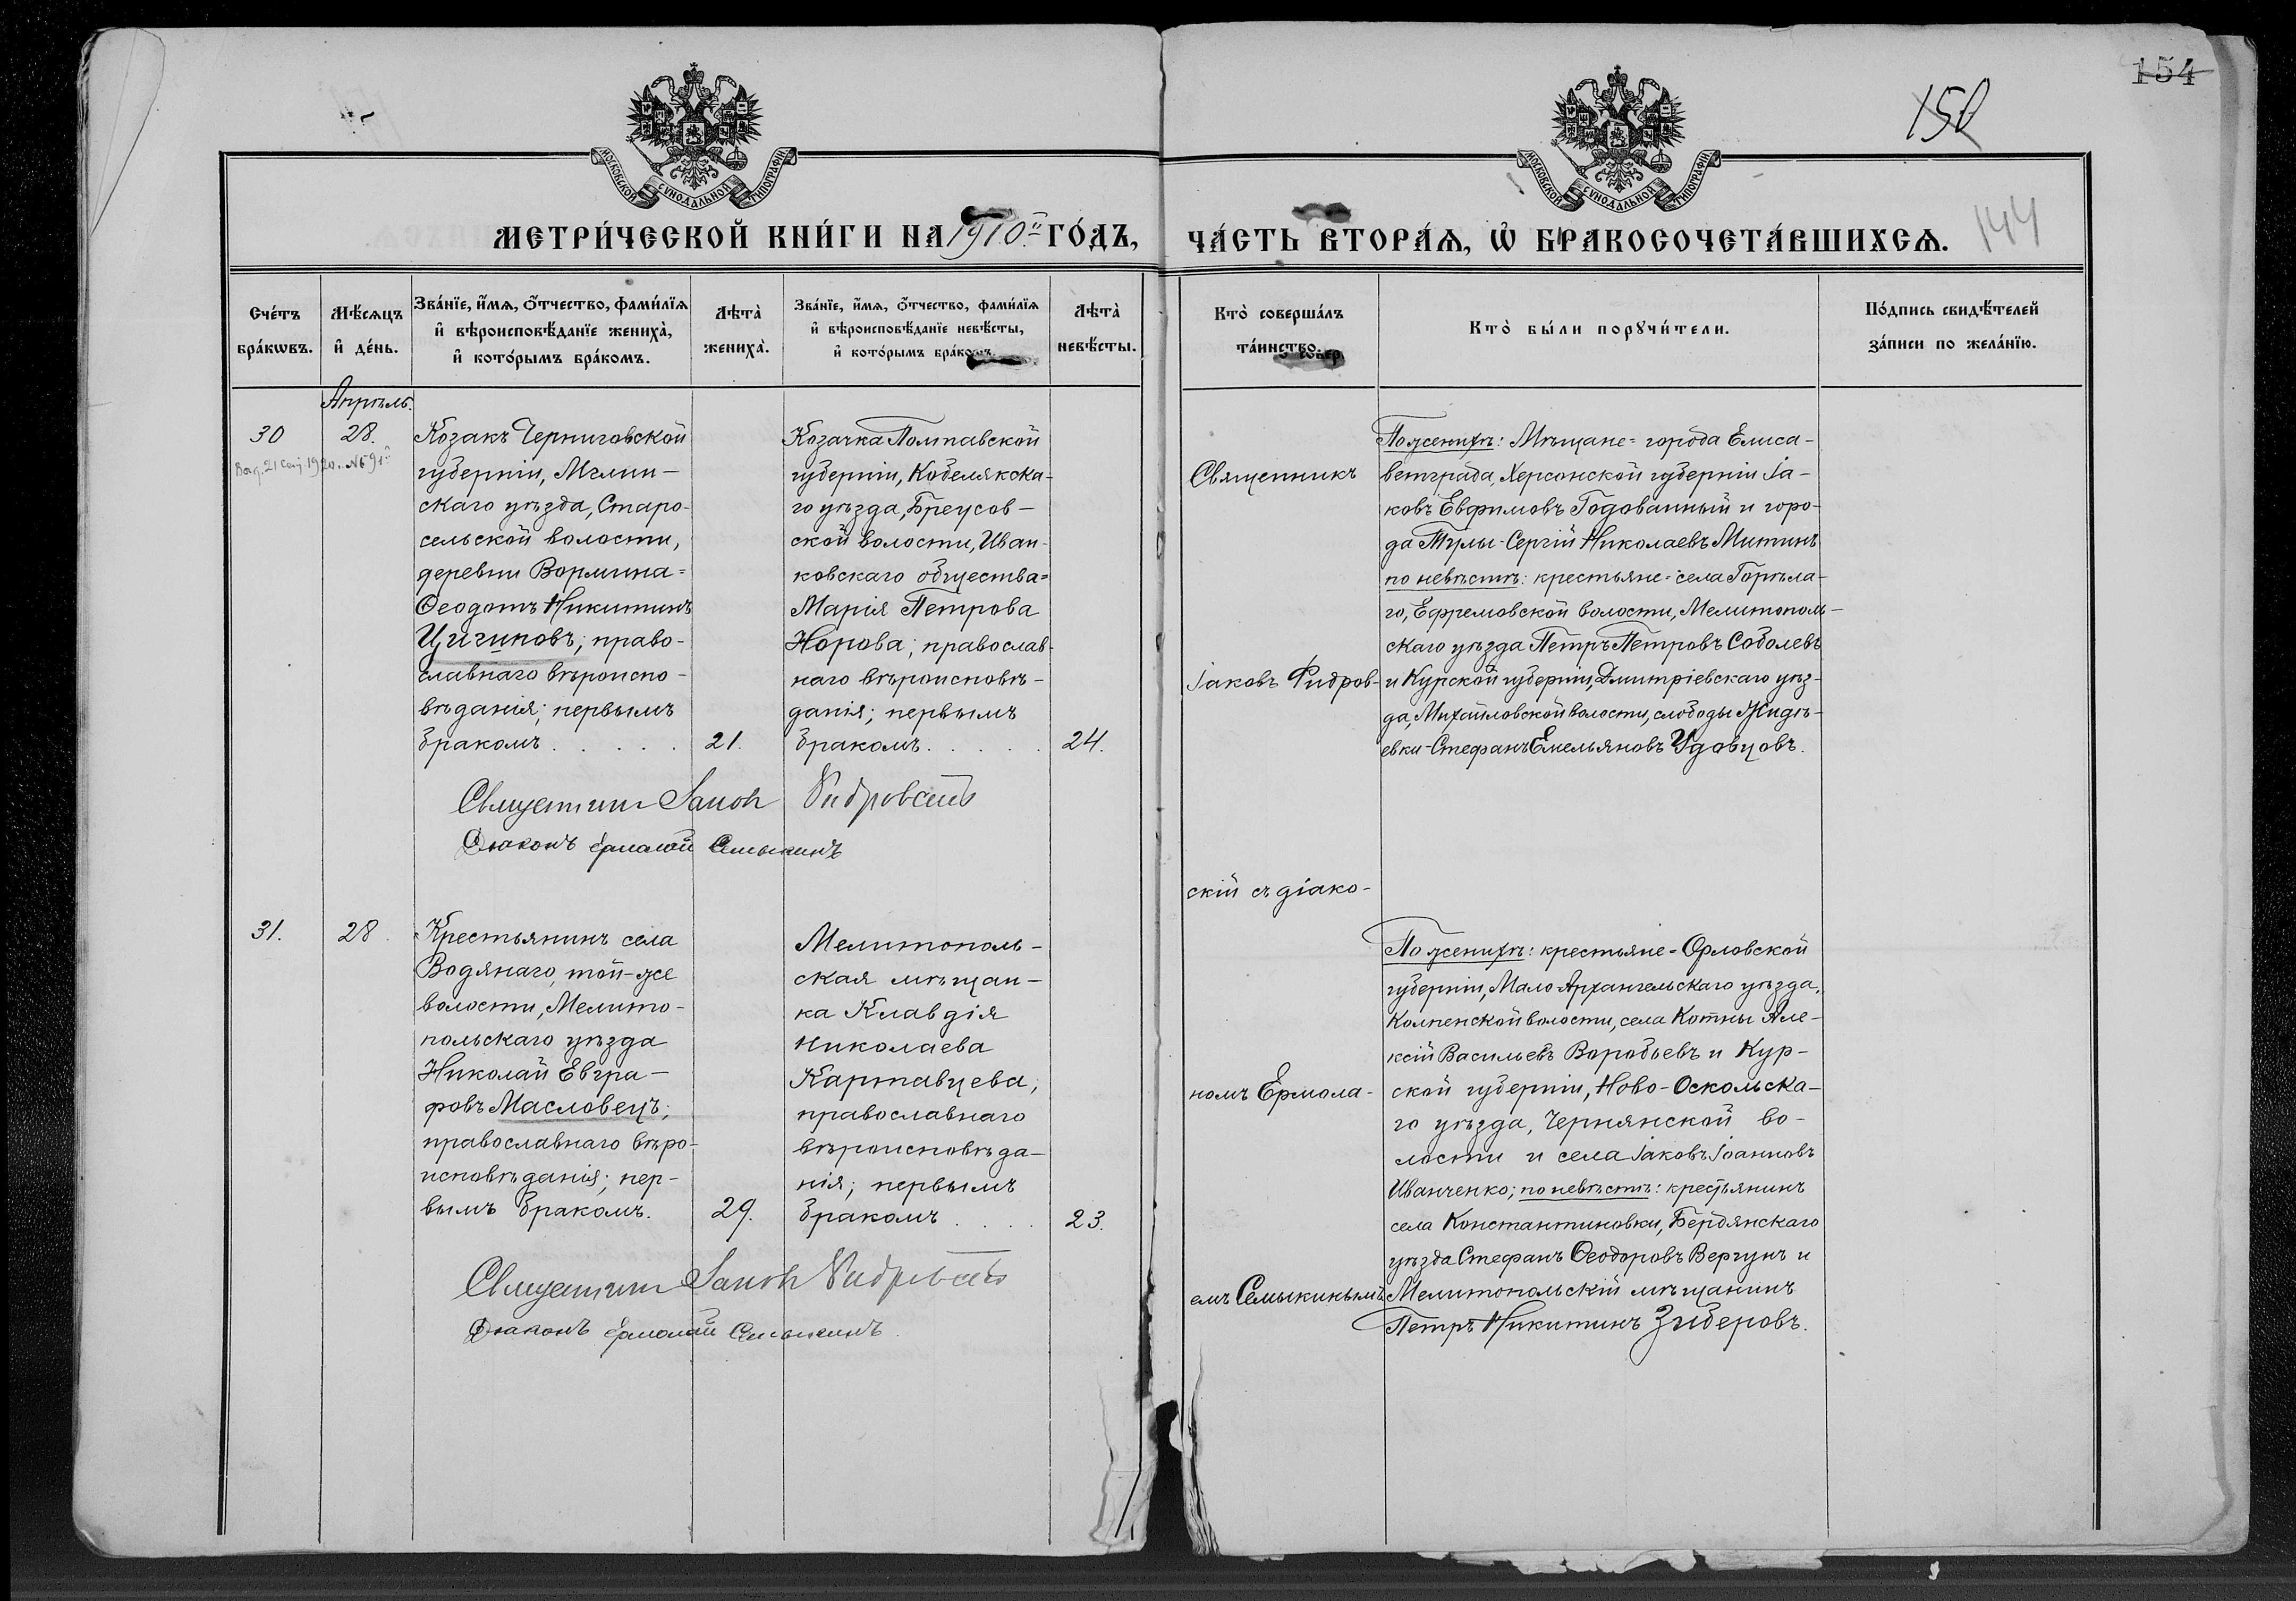 154
150
144
МОСКОВСКОЙ СУНОДАЛЬНОЙ ТИПОГРАФІИ.
МОСКОВСКОЙ СУНОДАЛЬНОЙ ТИПОГРАФІИ.
МЕТРИ́ЧЕСКОЙ КНИ́ГИ НА 1910й ГО́ДЪ,
ЧА́СТЬ ВТОРА́Ѧ, Ѡ҆ БРАКОСОЧЕТА́ВШИХСѦ.
Сче́тъ бра́кѡвъ.
Мѣ́сѧцъ и҆ де́нь.
Зва́нїе, и҆́мѧ, ѻ҆́тчество, фами́лїѧ
и҆ вѣроисповѣ́данїе жениха̀,
и҆ кото́рымъ бра́комъ.
Лѣта̀ жениха̀.
Зва́нїе, и҆́мѧ, ѻ҆́тчество, фами́лїѧ
и҆ вѣроисповѣ́данїе невѣ́сты,
и҆ кото́рымъ бра́комъ.
Лѣта̀ невѣ́сты.
Кто̀ соверша́лъ
та́инство.
Кто̀ бы́ли порꙋчи́тели.
По́дпись свидѣ́телей
за́писи по жела́нїю.
Апрѣль.
30
28.
Козакъ Черниговской
губерніи, Мглин-
скаго уѣзда, Старо-
сельской волости,
деревни Вормина=
Ѳеодотъ Никитинъ
Цыгиновъ; право-
славнаго вѣроиспо-
вѣданія; первымъ
бракомъ . . . . .
21.
Козачка Полтавской
губерніи, Кобелякска-
го уѣзда, Бреусов-
ской волости, Иван-
ковскаго общества=
Марія Петрова
Норова; православ-
наго вѣроисповѣ-
данія; первымъ
бракомъ. . . . .
24.
Священникъ
Іаковъ Фидров-
скій съ діако-
номъ Ермола-
емъ Семыкинымъ
По женихѣ: Мѣщане= города Елиса-
ветграда, Херсонской губерніи Іа-
ковъ Евфимовъ Годованный и горо-
да Тулы-Сергій Николаевъ Митинъ
по невѣстѣ: крестьяне-села Горѣла-
го, Ефремовской волости, Мелитополь-
скаго уѣзда Петръ Петровъ Соболевъ
и Курской губерніи, Дмитріевскаго уѣз-
да, Михайловской волости, слободы Жидѣ-
евки-Стефанъ Емельяновъ Удовцовъ.
Священникъ Іаковъ Фидровскій
Діаконъ Ермолай Семыкинъ
31.
28.
Крестьянинъ села
Водянаго, той-же
волости, Мелито-
польскаго уѣзда
Николай Евгра-
фовъ Масловецъ;
православнаго вѣро-
исповѣданія; пер-
вымъ бракомъ.
29.
Мелитополь-
ская мѣщан-
ка Клавдія
Николаева
Картавцева;
православнаго
вѣроисповѣда-
нія; первымъ
бракомъ . . . .
23.
По женихѣ: крестьяне-Орловской
губерніи, Мало Архангельскаго уѣзда,
Колпенской волости, села Котны Але-
ксій Васильевъ Воробьевъ и Кур-
ской губерніи, Ново-Оскольска-
го уѣзда, Чернянской во-
лости и села Іаковъ Іоанновъ
Иванченко; по невѣстѣ: крестьянинъ
села Константиновки, Бердянскаго
уѣзда Стефанъ Ѳеодоровъ Вергунъ и
Мелитопольскій мѣщанинъ
Петръ Никитинъ Зуберовъ.
Священникъ Іаковъ Фидровскій
Діаконъ Ермолай Семыкинъ.